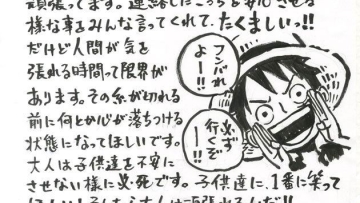 頑張ってます。連絡したこっちを安心させる
様な事をみんな言ってくれて、たくましいっ!!
だけど人間が気を
張れる時間って限界が
あります。その糸が切れる
前に何とか心が落ちつける
状態になってほしいです。
大人は子供達を不安に
させない様に必死です。子供達に、1番に笑って
フンバれ
よーー!!
必ず
行くぞ
ーー!!